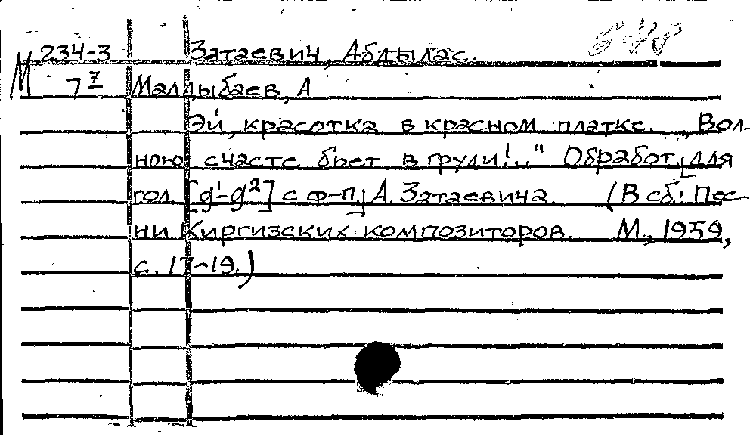 М 234-3 Затаевич, Абдылас.
7 7 Малдыбаев, А
Эй, красотка в красном платке. „Вол-
ною счастье бьет в груди!.." Обработ. для
гол. [g¹-g²] с ф-п. А. Затаевича. (В сб: Пес-
ни Киргизских композиторов. М., 1959,
с. 17-19.)